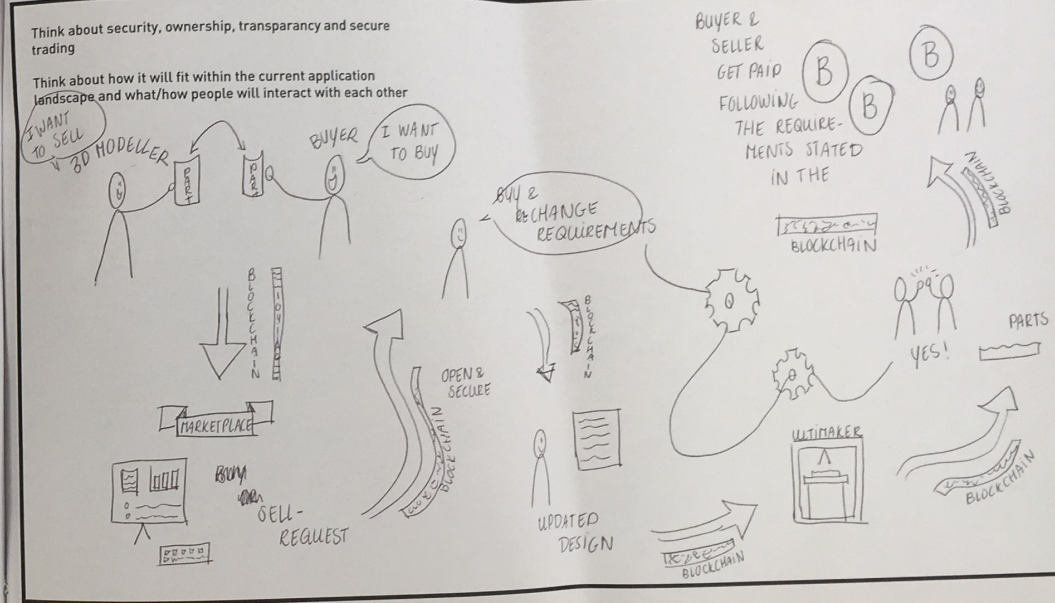 Think about security, ownership, transparancy and secure
trading
Think about how it will fit within the current application
landscape and what/how people will interact with each other
I WANT
TO SELL
3D MODELLER
PART
PART
BUYER
I WANT
TO BUY
BLOCKCHAIN
MARKETPLACE
SELL-
REQUEST
OPEN &
SECURE
BLOCKCHAIN
BUY &
CHANGE
REQUIREMENTS
BLOCKCHAIN
UPDATED
DESIGN
BLOCKCHAIN
ULTIMAKER
BLOCKCHAIN
PARTS
YES!
BLOCKCHAIN
BUYER &
SELLER
GET PAID
FOLLOWING
THE REQUIRE-
MENTS STATED
IN THE
BLOCKCHAIN
B
B
B